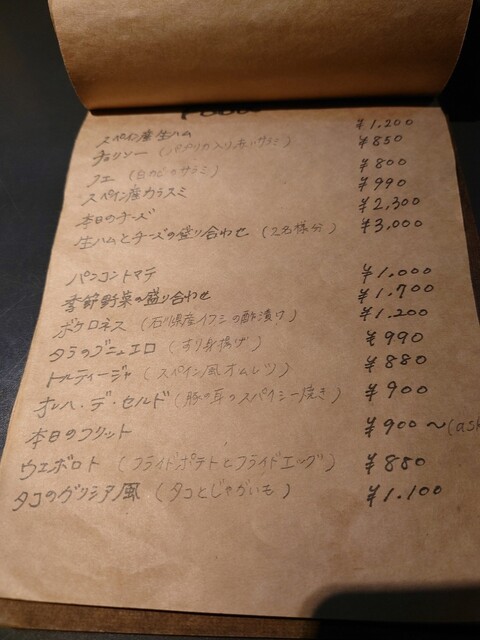 FOOD
スペイン産生ハム ¥1.200
チョリソー (パプリカ入り赤いサラミ) ¥850
フエ (白カビのサラミ) ¥800
スペイン産カラスミ ¥990
本日のチーズ ¥2,300
生ハムとチーズの盛り合わせ (2名様分) ¥3,000
パンコントマテ ¥1.000
季節野菜の盛り合わせ ¥1.700
ボケロネス (石川県産イワシの酢漬け) ¥1.200
タラのブニュエロ (すり身揚げ) ¥990
トルティージャ (スペイン風オムレツ) ¥880
オレハ・デ・セルド (豚の耳のスパイシー焼き) ¥900
本日のフリット ¥900〜(ask
ウエボロト (フライドポテトとフライドエッグ) ¥880
タコのガリシア風 (タコとじゃがいも) ¥1.100